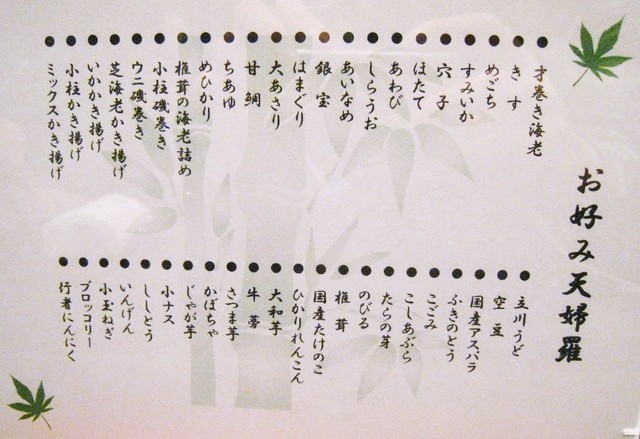 お好み天婦羅
才巻き海老
きす
めごち
すみいか
穴子
ほたて
あわび
しらうお
あいなめ
銀宝
はまぐり
大あさり
甘鯛
ちあゆ
めひかり
椎茸の海老詰め
小柱磯巻き
ウニ磯巻き
芝海老かき揚げ
いかかき揚げ
小柱かき揚げ
ミックスかき揚げ
立川うど
空豆
国産アスパラ
ふきのとう
こごみ
こしあぶら
たらの芽
のびる
椎茸
国産たけのこ
ひかりれんこん
大和芋
牛蒡
さつま芋
かぼちゃ
じゃが芋
小ナス
ししとう
いんげん
小玉ねぎ
ブロッコリー
行者にんにく